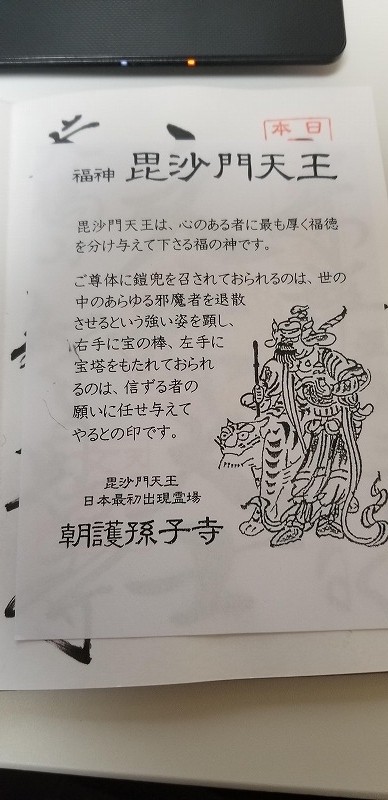 本日
福神 毘沙門天王
毘沙門天王は、心のある者に最も厚く福徳
を分け与えて下さる福の神です。
ご尊体に鎧兜を召されておられるのは、世の
中のあらゆる邪魔者を退散
させるという強い姿を顕し、
右手に宝の棒、左手に
宝塔をもたれておられ
るのは、信ずる者の
願いに任せ与えて
やるとの印です。
毘沙門天王
日本最初出現霊場
朝護孫子寺